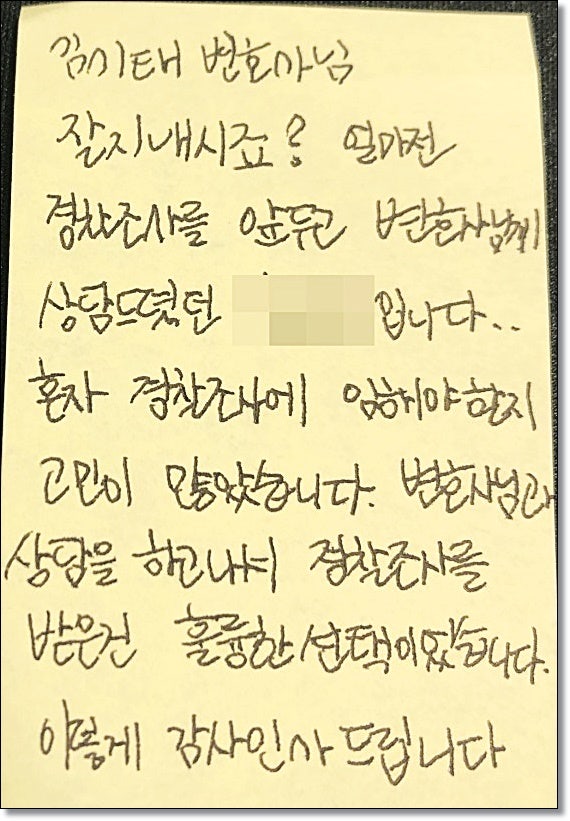 김기태 변호사님
잘지내시죠? 얼마전
경찰조사를 앞두고 변호사님께
상담드렸던 입니다..
혼자 경찰조사에 임해야할지
고민이 많았습니다. 변호사님과
상담을 하고나서 경찰조사를
받은건 훌륭한 선택이었습니다.
이렇게 감사인사드립니다